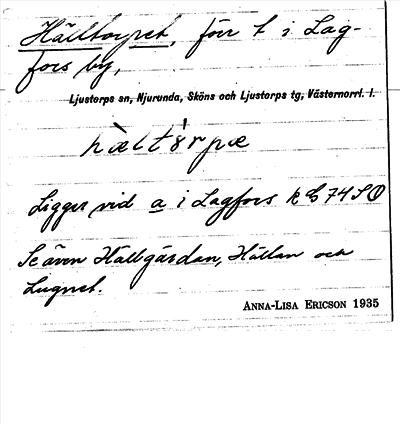 Hälltorpet, förr t i Lag-
fors by,
Ljustorps sn, Njurunda, Sköns och Ljustorps tg, Västernorrl. l.
hæltɔrpæ
Ligger vid a i Lagfors k b 74 SO
Se även Hällgårdan, Hällan och
Lugnet.
ANNA-LISA ERICSON 1935